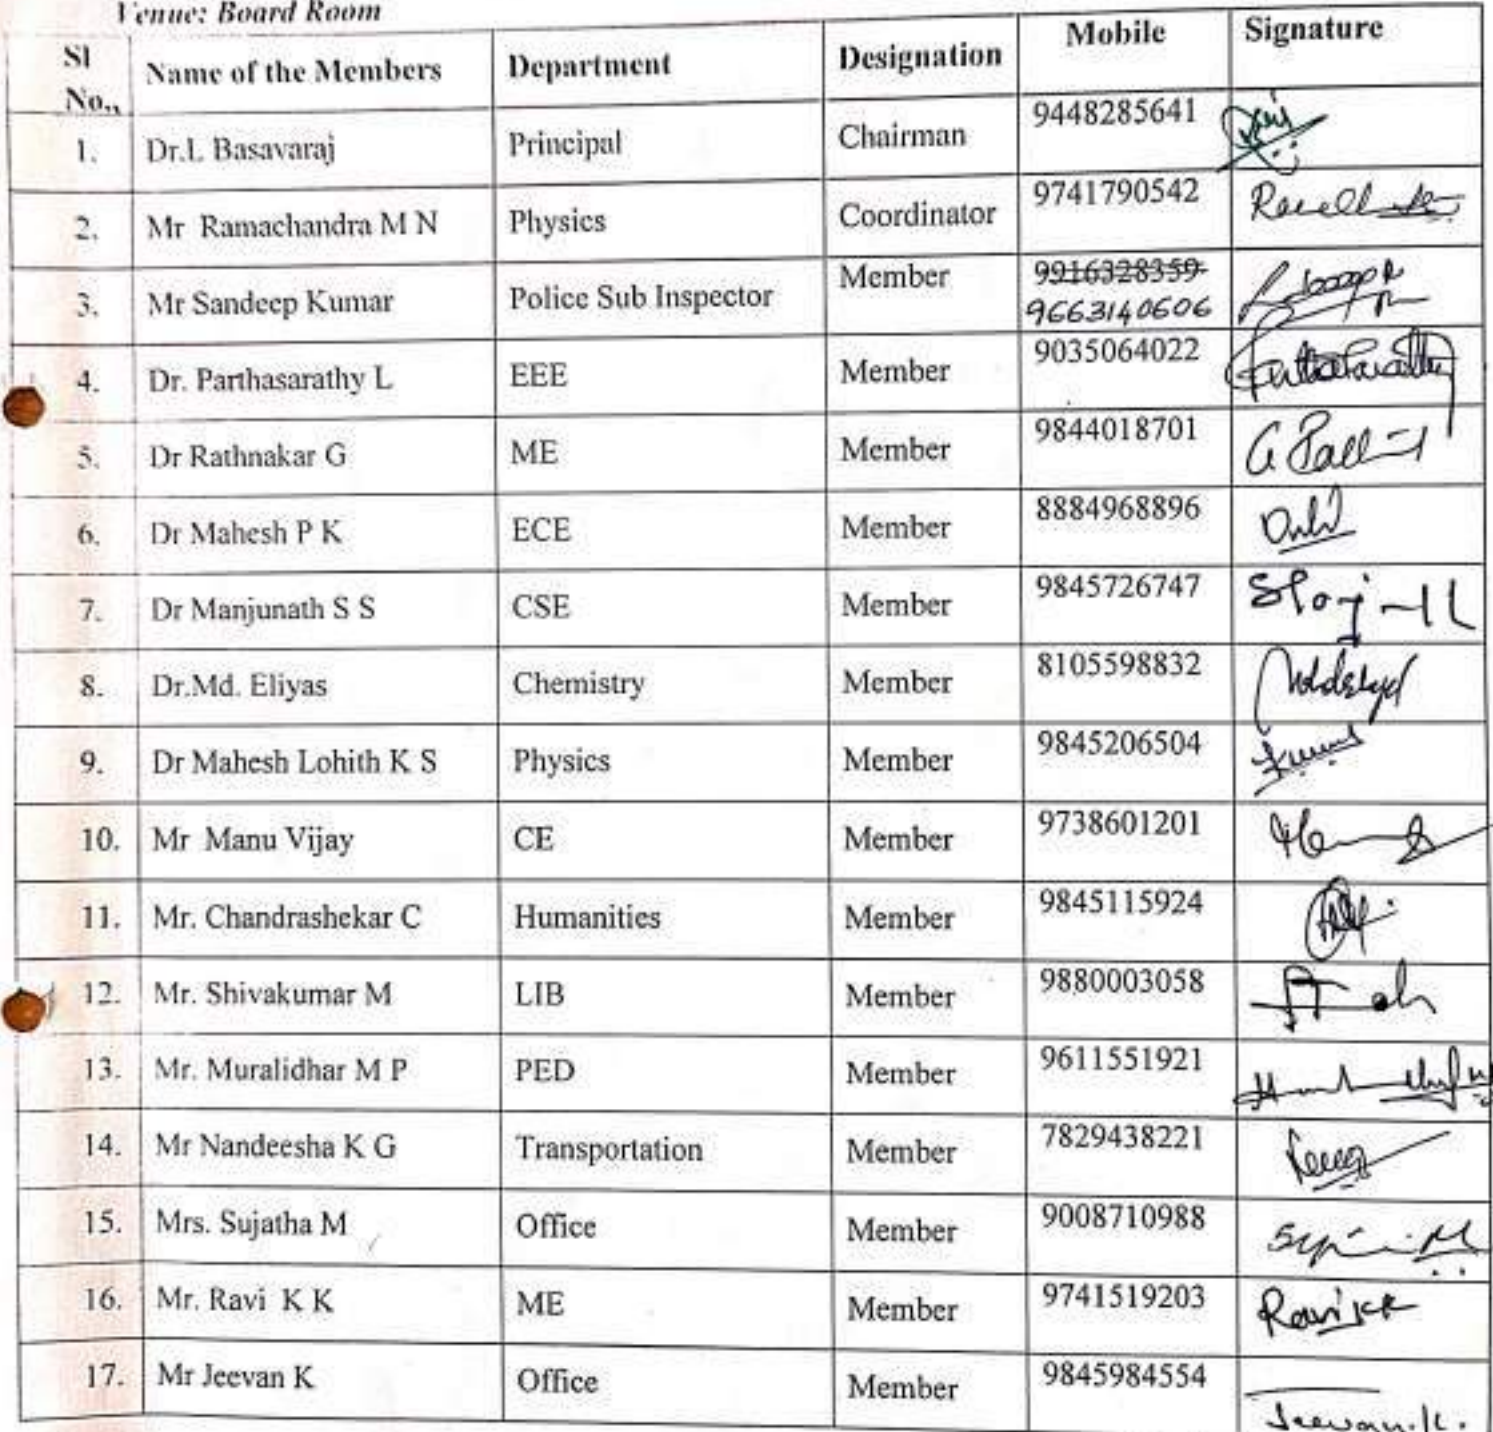 Venue: Board Room
Sl No., Name of the Members Department Designation Mobile Signature
1. Dr.L Basavaraj Principal Chairman 9448285641
2. Mr Ramachandra M N Physics Coordinator 9741790542
3. Mr Sandeep Kumar Police Sub Inspector Member 9916328359 9663140606
4. Dr. Parthasarathy L EEE Member 9035064022 Parthasarathy
5. Dr Rathnakar G ME Member 9844018701
6. Dr Mahesh P K ECE Member 8884968896
7. Dr Manjunath S S CSE Member 9845726747
8. Dr.Md. Eliyas Chemistry Member 8105598832
9. Dr Mahesh Lohith K S Physics Member 9845206504
10. Mr Manu Vijay CE Member 9738601201
11. Mr. Chandrashekar C Humanities Member 9845115924
12. Mr. Shivakumar M LIB Member 9880003058
13. Mr. Muralidhar M P PED Member 9611551921
14. Mr Nandeesha K G Transportation Member 7829438221
15. Mrs. Sujatha M Office Member 9008710988
16. Mr. Ravi K K ME Member 9741519203 Ravi KK
17. Mr Jeevan K Office Member 9845984554 Jeevan.K.